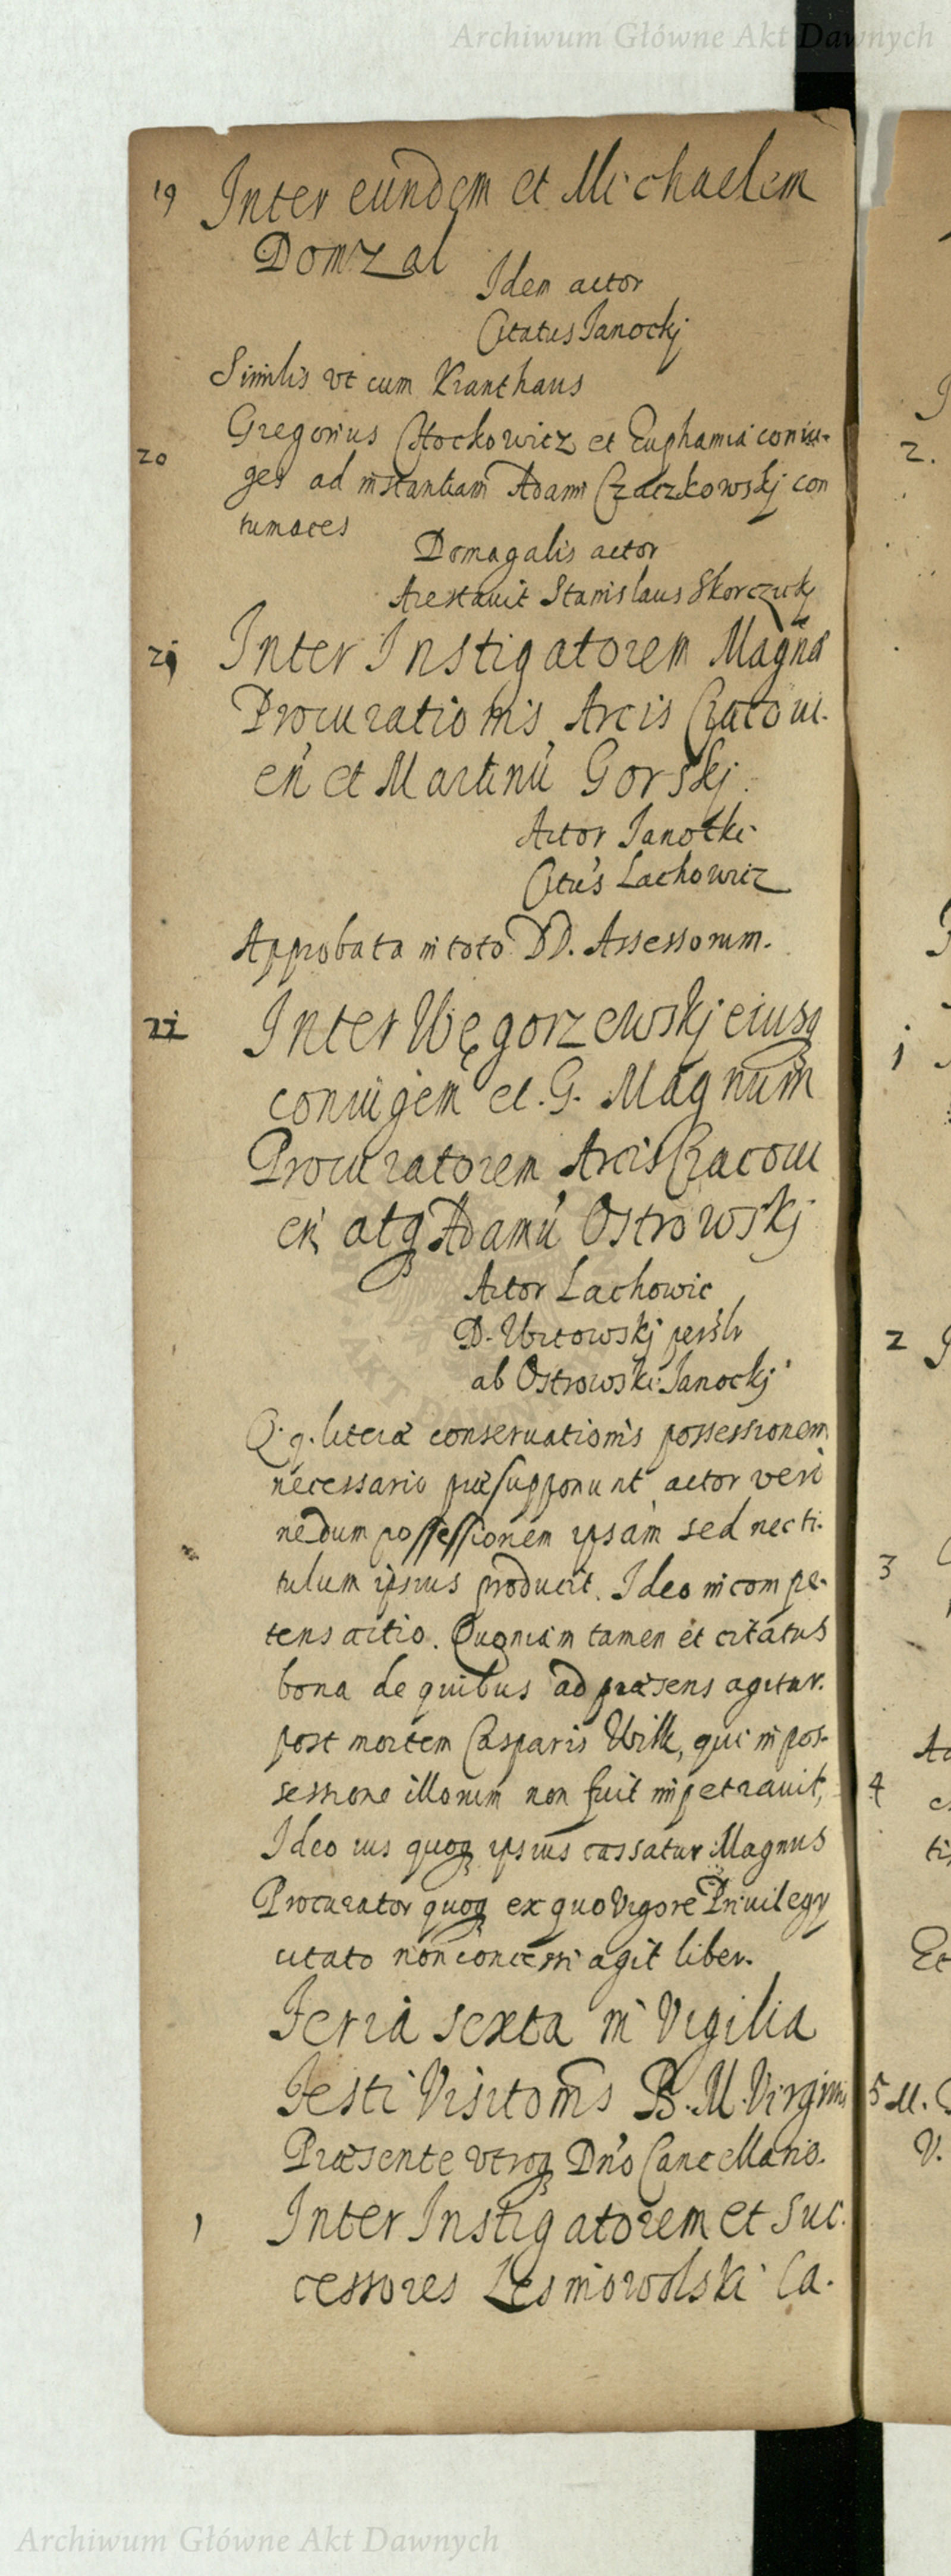 Archiwum Główne Akt Dawnych
19 Inter eundem et Michaelem
Domzal
Idem actor
Citatus Janockj
Similis vt cum Kranthaus
20 Gregorius Chockowicz et Euphamia coniu-
ges ad instantiam Adami Czaczkowskj con
tumaces
Domagalis actor
Arestauit Stanislaus Skorczuky
21 Inter Instigatorem Magnæ
Procurationis Arcis Cracoui-
en et Martinu Gorskj.
Actor Janotki
Citus Lachowicz
Approbata in toto DD. Assessorum.
22 Inter Węgorzewskj eiusq
coniugem et. G. Magnum
Procuratorem Arcis Cracoui
en atq Adamu Ostrowskj
Actor Lachowic
D. Vitowskj persolr
ab Ostrowski Janockj
Q. q. literæ conseruationis possessionem
necessario præsupponunt actor vero
nedum possessionem ipsam sed nec ti-
tulum ipsius producit. Ideo incompe-
tens actio. Quoniam tamen et citatus
bona de quibus ad præsens agitur.
post mortem Casparis Wilk, qui in pos-
sessione illorum non fuit impetrauit,
Ideo ius quoq ipsius cassatur Magnus
Procurator quoq ex quo vigore Priuilegy
citato non concessi agit liber.
Feria sexta in Vigilia
Festi Visitonis B. M. Virginis
Præsente vtroq Dno Cancellario.
1 Inter Instigatorem et Suc-
cessores Lesniowolski Ca-
2.
1
2
3
4
5 M.
V.
Archiwum Główne Akt Dawnych